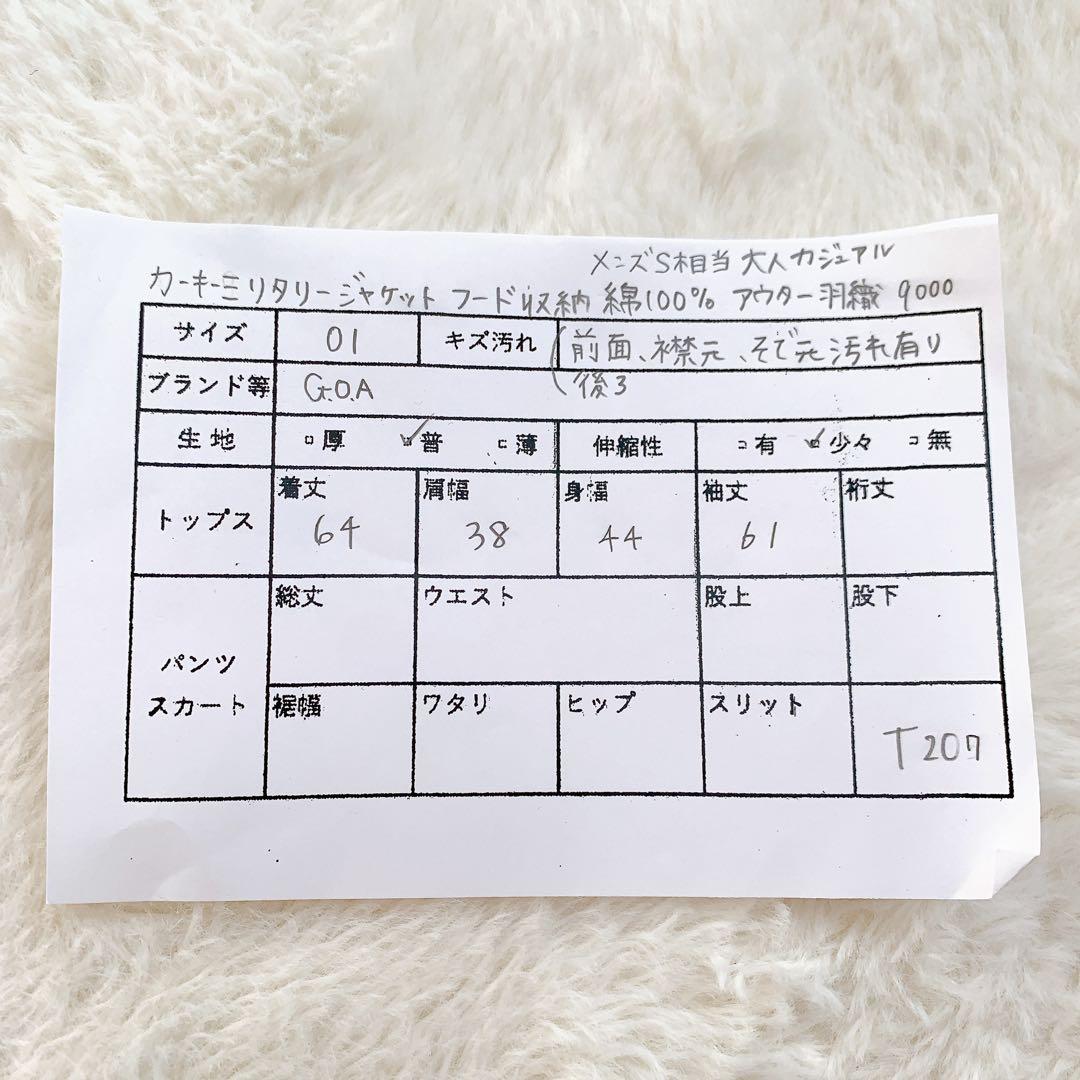 メンズS相当 大人カジュアル
カーキーミリタリージャケット フード収納 綿100% アウター羽織 9000
サイズ 01 キズ汚れ (前面、襟元、そで元汚れ有り
ブランド等 G.O.A 後3
生地 □厚 ☑普 □薄 伸縮性 □有 ☑少々 □無
トップス 着丈 肩幅 身幅 袖丈 裄丈
64 38 44 61
パンツ スカート
総丈 ウエスト 股上 股下
裾幅 ワタリ ヒップ スリット
T207